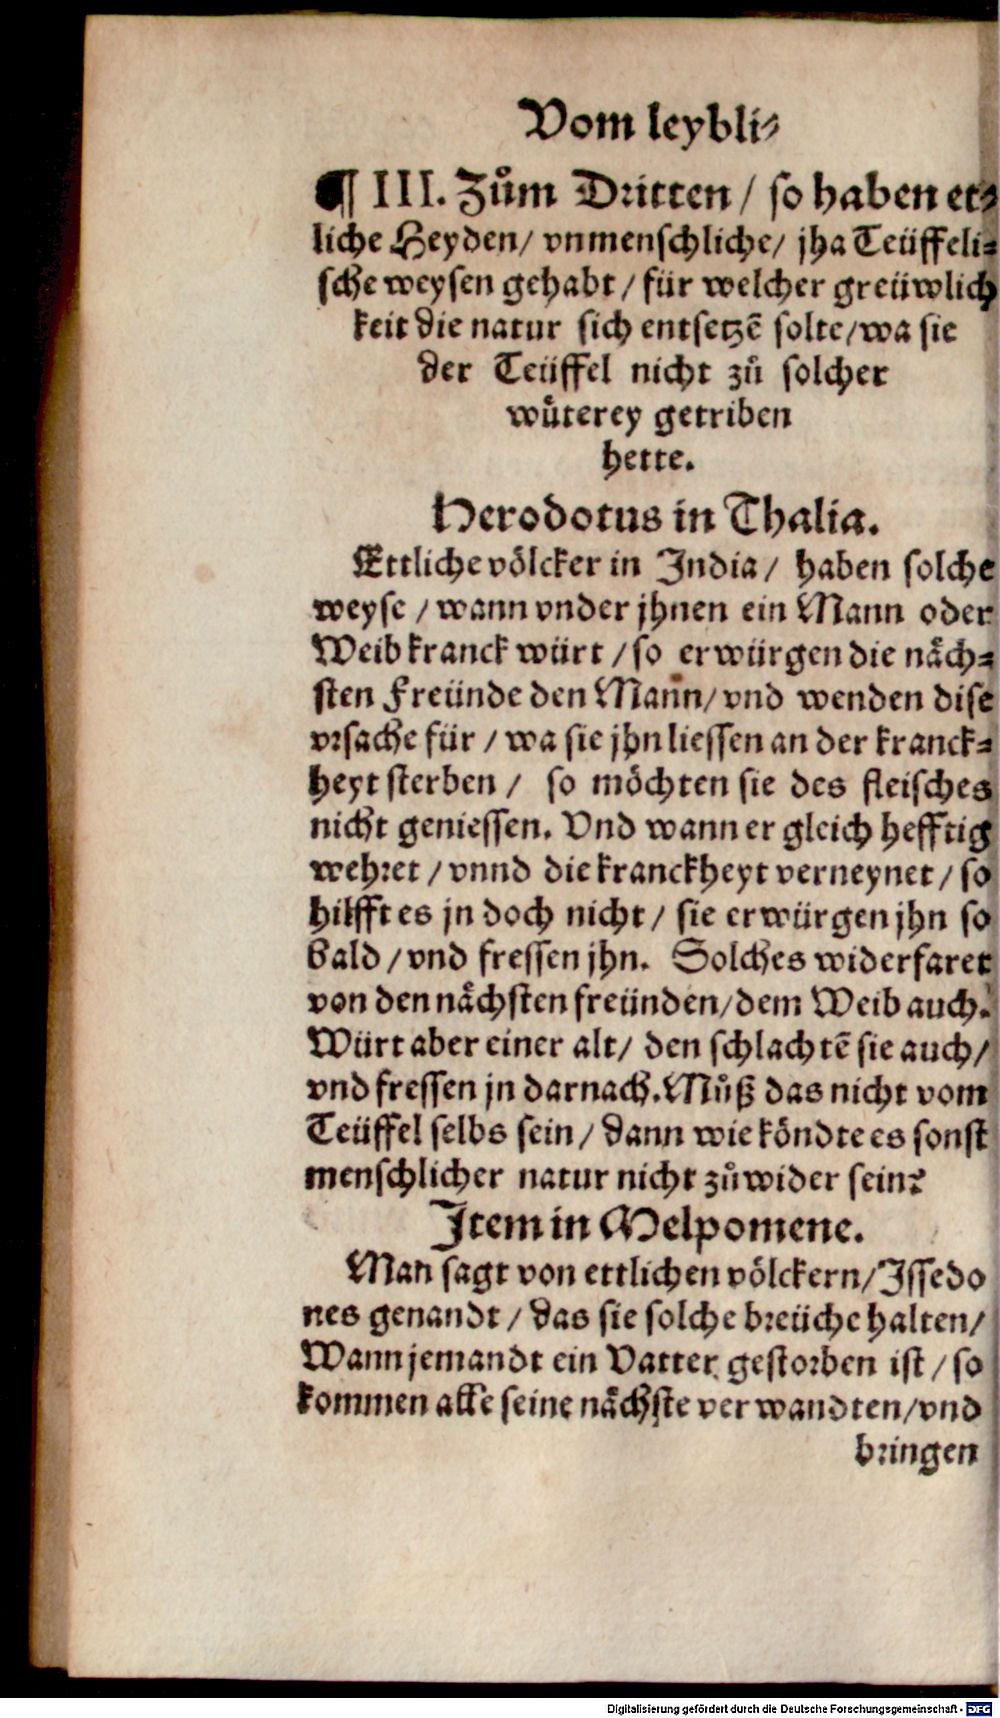 Vom leybli⸗
¶ III. Zům Dritten / so haben et⸗
liche Heyden / vnmenschliche / jha Teüffeli⸗
sche weysen gehabt / für welcher greüwlich
keit die natur sich entsetzē solte / wa sie
der Teüffel nicht zů solcher
wůterey getriben
hette.
Herodotus in Thalia.
Ettliche völcker in India / haben solche
weyse / wann vnder jhnen ein Mann oder
Weib kranck würt / so erwürgen die näch⸗
sten Freünde den Mann / vnd wenden dise
vrsache für / wa sie jhn liessen an der kranck⸗
heyt sterben / so möchten sie des fleisches
nicht geniessen. Vnd wann er gleich hefftig
wehret / vnnd die kranckheyt verneynet / so
hilfft es jn doch nicht / sie erwürgen jhn so
bald / vnd fressen jhn. Solches widerfaret
von den nächsten freünden / dem Weib auch.
Würt aber einer alt / den schlachtē sie auch /
vnd fressen jn darnach. Můß das nicht vom
Teüffel selbs sein / dann wie köndte es sonst
menschlicher natur nicht zůwider sein?
Item in Melpomene.
Man sagt von ettlichen völckern / Issedo
nes genandt / das sie solche breüche halten /
Wann jemandt ein Vatter gestorben ist / so
kommen alle seine nächste verwandten / vnd
bringen
Digitalisierung gefördert durch die Deutsche Forschungsgemeinschaft - DFG